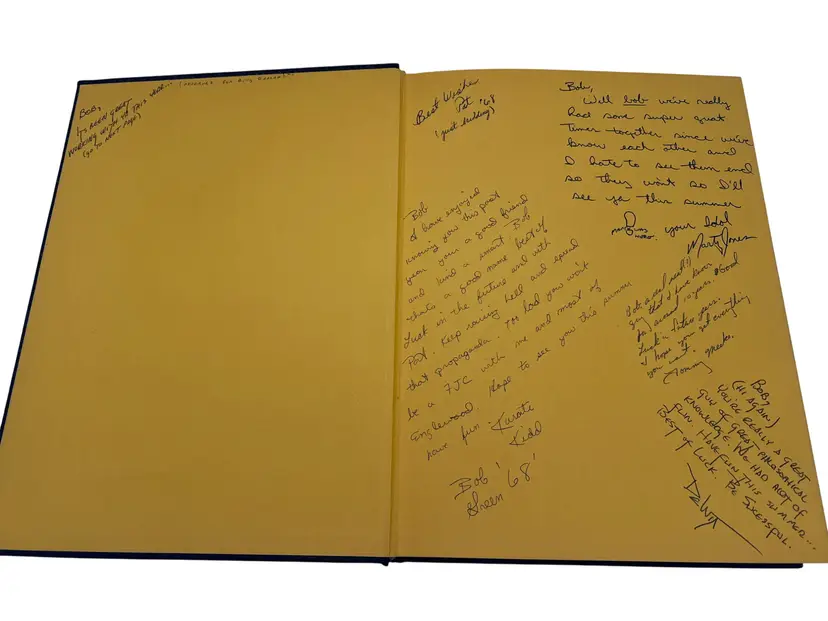 BOB,
IT'S BEEN GREAT
WORKING WITH YA THIS YEAR
(GO TO NEXT PAGE)
Best Wishes
Pat '68
(just kidding)
Bob,
Well bob we've really
had some super great
times together since we've
know each other and
I hate to see them end
so they won't so I'll
see ya this summer
your Idol
Marty Jones
Bob
I have enjoyed
knowing you this past
year your a good friend
and kind a smart Bob
thats a good name best of
Luck in the future and with
Pat. Keep raising hell and spread
that propaganda. Too bad you won't
be a FJC with me and most of
Englewood. Hope to see you this summer
have fun. Karate
Kidd
Bob
Sheen '68'
To a real neat
guy that I have known
for around 10 years. Good
Luck in future years.
I hope you get everything
you want.
Tommy Meeks.
BOB,
(HI AGAIN)
YOU'RE REALLY A GREAT
GUY OF GREAT PHILOSOPHICAL
KNOWLEDGE. WE HAD ALOT OF
FUN. HAVE FUN THIS SUMMER...
BEST OF LUCK. BE SUCESSFUL.